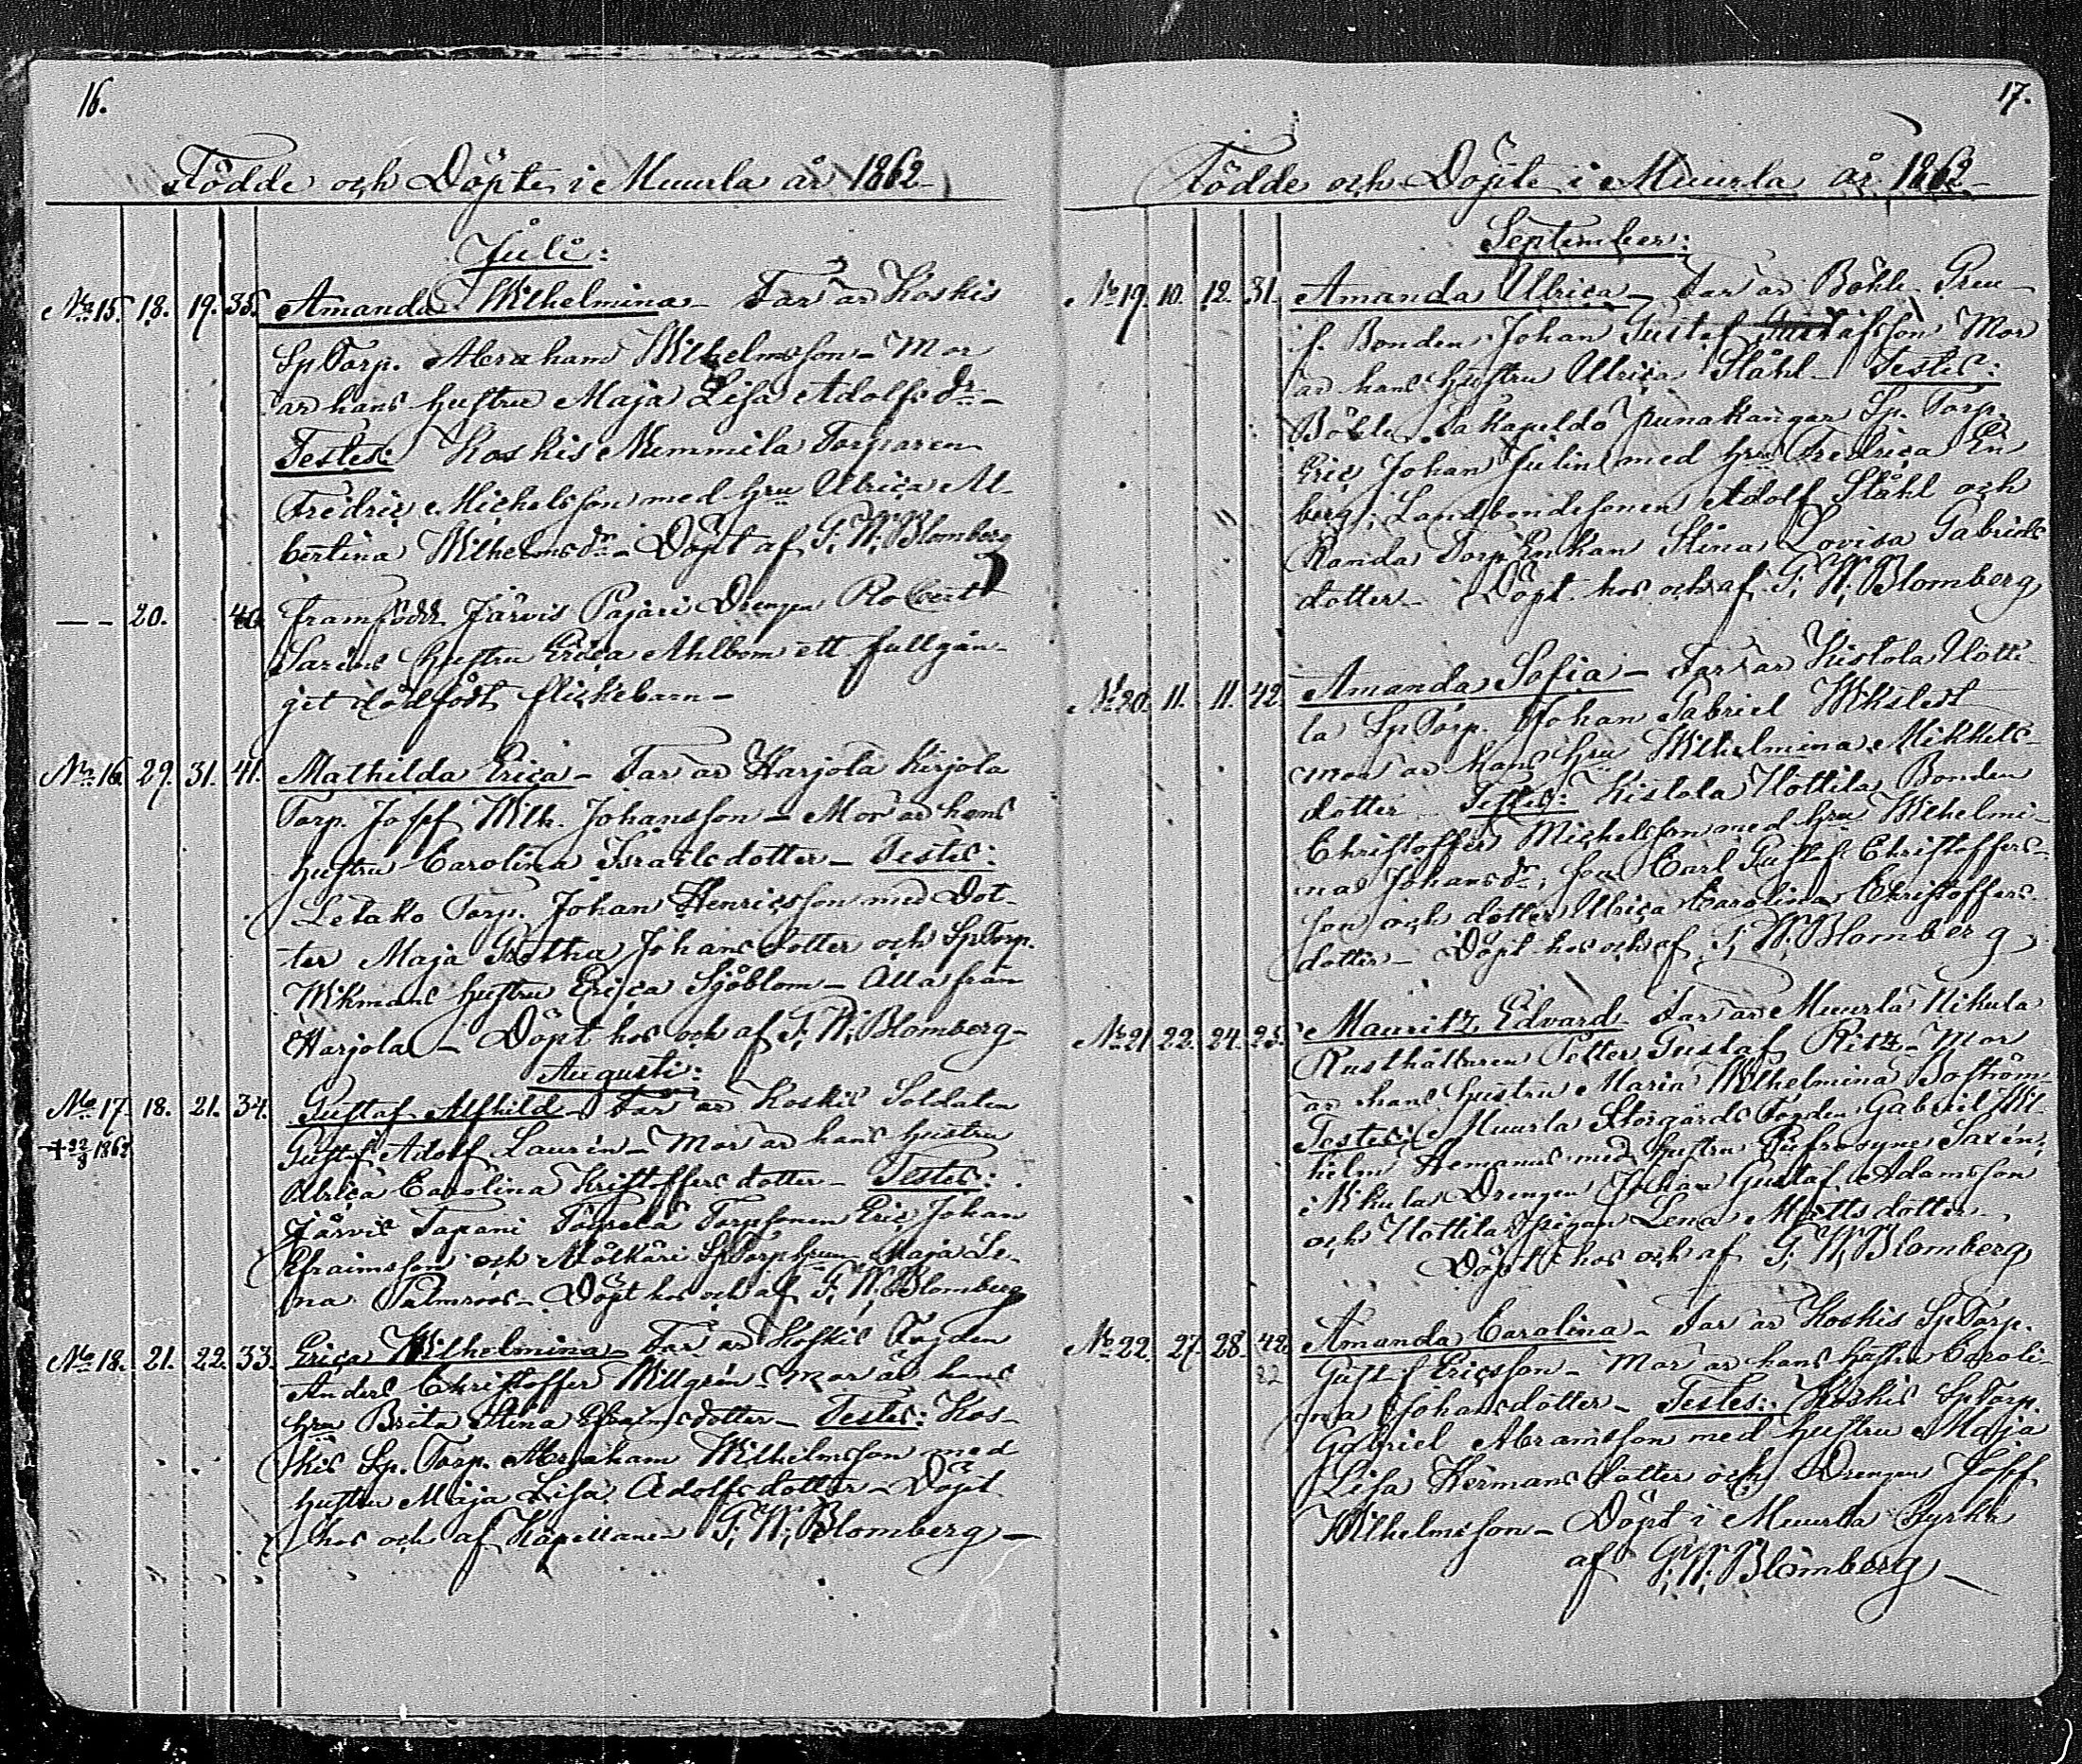 16.
Födde och Döpte i Muurla år 1862
Juli:
No 15. 18. 19. 35. Amanda Wilhelmina - Far är Koskis
Sp Torp. Abraham Wilhelmsson - Mor
är hans hustru Maja Lisa Adolfsdr -
Testes: Koskis Nemmila Torparen
Fredric Michelsson med hru Ulrica Al-
bertina Wilhelmsdr - Döpt af G. W. Blomberg
— — 20. 40. Framfödde Järvis Pajari Drengen Robert
Sarins hustru Erica Ahlbom ett fullgån-
get dödfödt flickebarn -
No 16. 29. 31. 41. Mathilda Erica - Far är Harjola Kirjola
Torp. Josef Wilh. Johansson - Mor är hans
hustru Carolina Israelsdotter - Testes:
Letako Torp. Johan Henricsson med Dot-
ter Maja Gretha Johansdotter och Sp Torp.
Wikmans hustru Erica Sjöblom - Alla från
Harjola - Döpt hos och af G. W. Blomberg -
Augusti:
No 17. 18. 21. 34. Gustaf Alfhild - Far är Koskis Soldaten
+ 22/8 1862 Gustaf Adolf Laurén - Mor är hans hustru
Ulrica Carolina Kristoffersdotter - Testes:
Järvis Tapani Torpsonen Eric Johan
Efraimsson och Mälkäri Sp Torp hrun Maja Le-
na Palmroos - Döpt hos och af G. W. Blomberg
No 18. 21. 22. 33. Erica Wilhelmina - Far är Koskis Fogden
Anders Christoffer Willgrén - Mor är hans
hru Brita Stina Efraimsdotter - Testes: Kos-
kis Sp. Torp. Abraham Wilhelmsson med
hustru Maja Lisa Adolfsdotter - Döpt
hos och af Kapellanen G. W. Blomberg -
17.
Födde och Döpte i Muurla år 1862
September:
No 19. 10. 12. 31. Amanda Ulrica - Far är Böhle Preu-
f. Bonden Johan Gustaf Gustafsson Mor
är hans hustru Ulrica Ståhl - Testes:
Böhle Takapeldo Punakangar Sp. Torp.
Eric Johan Julin med hru Fredrica En
berg; Landbondesonen Adolf Ståhl och
Randa Torp Enkan Stina Lovisa Gabriels
dotter - Döpt hos och af G. W. Blomberg
No 20. 11. 11. 42. Amanda Sofia - Far är Kistola Uotti
la Sp Torp. Johan Gabriel Wikstedt
mor är hans hru Wilhelmina Mikkels-
dotter - Testes: Kistola Uottila Bonden
Christoffer Michelsson med hru Wilhelmi-
na Johansdr; son Carl Gustaf Christoffers-
son och dotter Ulrica Carolina Christoffers-
dotter - Döpt hos och af G. W. Blomberg
No 21. 22. 24. 25. Mauritz Edvard - Far är Muurla Nikula
Rusthållaren Petter Gustaf Ritz - Mor
är hans hustru Maria Wilhelmina Boström -
Testes: Muurla Storgårds Fogden Gabriel Wil-
helm Hemanus med hustru Eufrosyne Saxén,
Nikula Drengen Johan Gustaf Adamsson
och Uottila pigan Lena Mattsdotter
Döpt hos och af G. W. Blomberg
No 22. 27. 28. 42. Amanda Carolina - Far är Koskis Sp Torp.
Gustaf Ericsson - Mor är hans hustru Caroli-
na Johansdotter - Testes: Koskis Sp Torp.
Gabriel Abramsson med hustru Maja
Lisa Hermansdotter och Drengen Josef
Wilhelmsson - Döpt i Muurla Kyrka
af G. W. Blomberg -